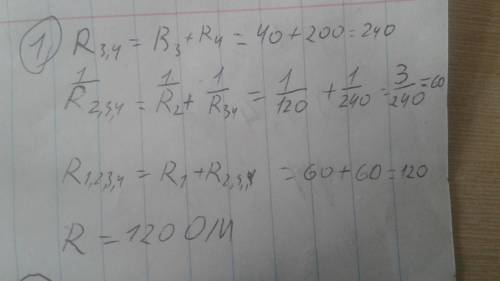 1) R3,4 = R3 + R4 = 40 + 200 = 240
1/R2,3,4 = 1/R2 + 1/R3,4 = 1/120 + 1/240 = 3/240 = 60
R1,2,3,4 = R1 + R2,3,4 = 60 + 60 = 120
R = 120 Ом